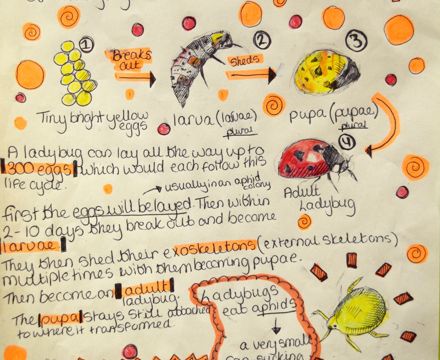 ①
Breaks out
②
sheds
③
Tiny bright yellow eggs
larva (larvae)
plural
pupa (pupae)
plural
④
A ladybug can lay all the way up to
300 eggs which would each follow this
life cycle.
→ usually in an aphid colony
Adult Ladybug
first the eggs will be layed. Then within
2-10 days they break out and become
larvae
They then shed their exoskeletons (external skeletons)
multiple times with them becoming pupae.
Then become an adult
ladybug.
The pupa stays still attached
to where it transformed
Ladybugs
eat aphids
a very small
sap sucking